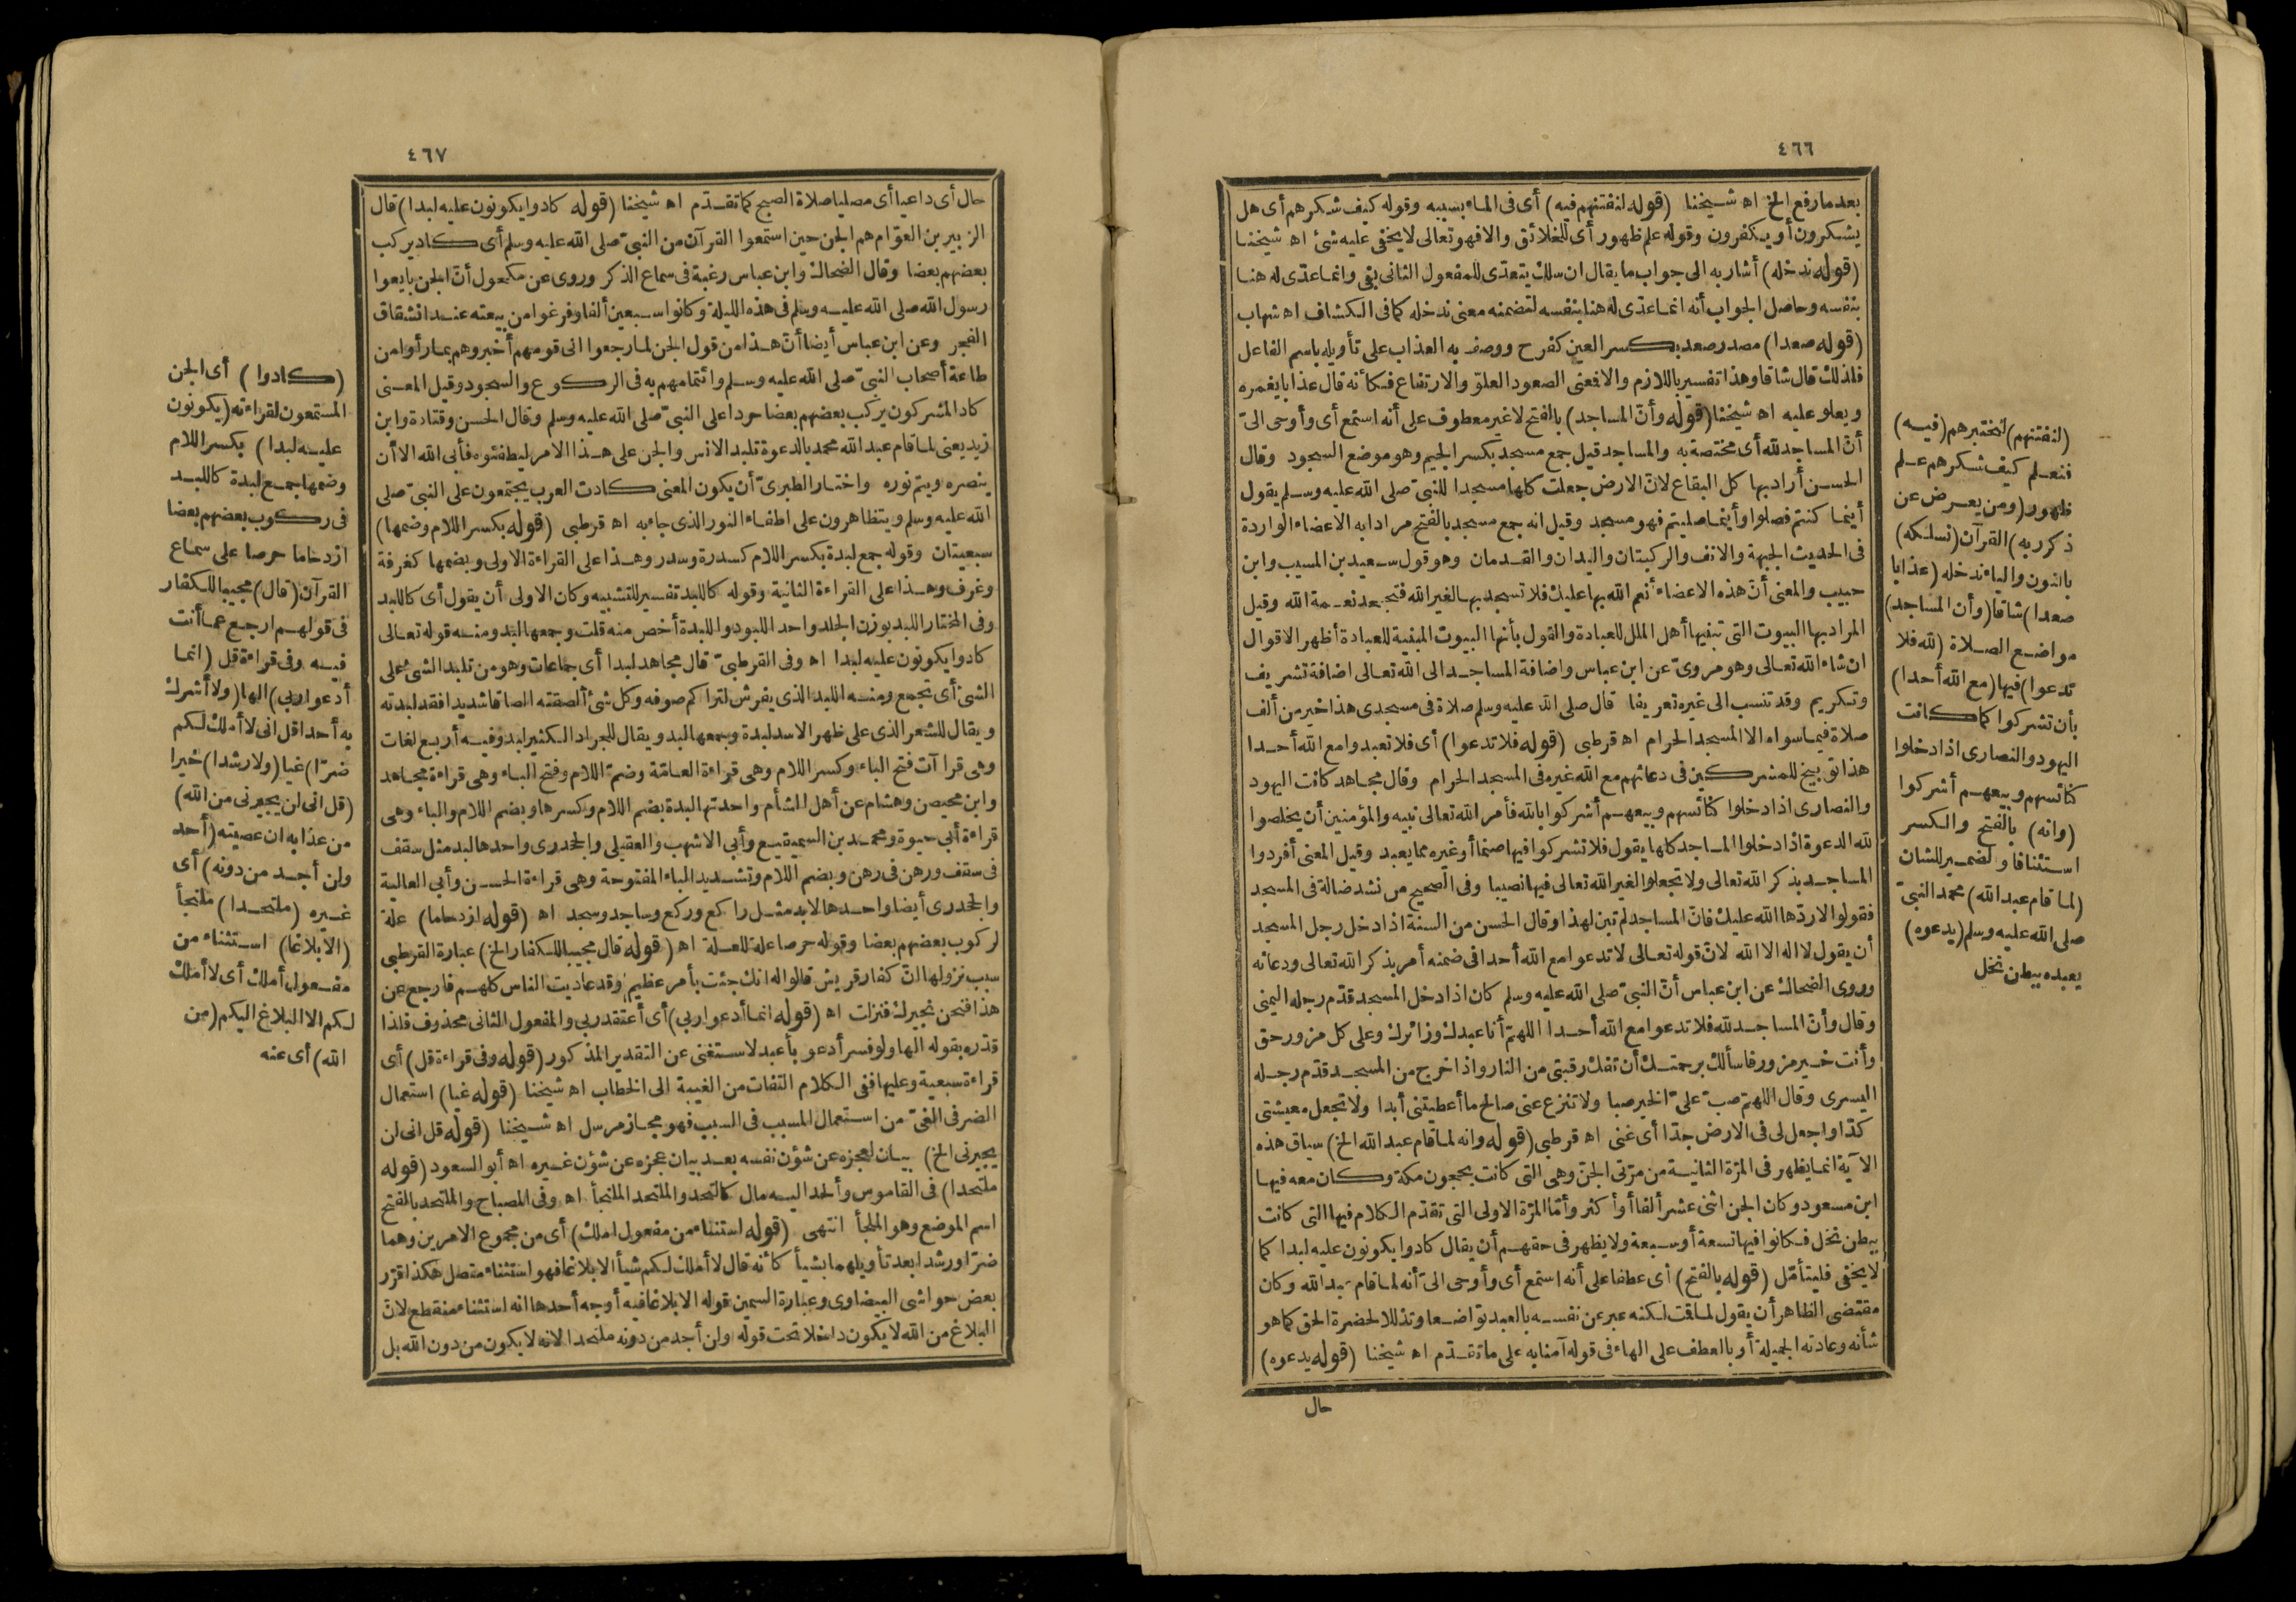 ٤٦٦
بعد ما رفع الخ اه شيخنا (قوله لنفتنهم فيه) أى فى الماء بسببه وقوله كيف شكرهم أى هل
يشكرون أو يكفرون وقوله علم ظهور أى للخلائق والا فهو تعالى لا يخفى عليه شئ اه شيخنا
(قوله ندخله) أشار به الى جواب ما يقال ان سلك يتعدى للمفعول الثانى بفى وانما عدى له هنا
بنفسه وحاصل الجواب أنه انما عدى له هنا بنفسه لتضمنه معنى ندخله كما فى الكشاف اه شهاب
(قوله صعدا) مصدر صعد بكسر العين كفرح ووصف به العذاب على تأويله باسم الفاعل
فلذلك قال شاقا وهذا تفسير باللازم والا فمعنى الصعود العلو والارتفاع فكأنه قال عذابا يغمره
ويعلو عليه اه شيخنا (قوله وأن المساجد) بالفتح لا غير معطوف على أنه استمع أى وأوحى الىّ
أن المساجد لله أى مختصة به والمساجد قيل جمع مسجد بكسر الجيم وهو موضع السجود وقال
الحسن أراد بها كل البقاع لانّ الارض جعلت كلها مسجدا للنبىّ صلى الله عليه وسلم يقول
أينما كنتم فصلوا وأينما صليتم فهو مسجد وقيل انه جمع مسجد بالفتح مرادا به الاعضاء الواردة
فى الحديث الجبهة والانف والركبتان واليدان والقدمان وهو قول سعيد بن المسيب وابن
حبيب والمعنى أنّ هذه الاعضاء أنعم الله بها عليك فلا تسجد بها لغير الله فتجحد نعمة الله وقيل
المراد بها البيوت التى تبنيها أهل الملل للعبادة والقول بأنها البيوت المبنية للعبادة أظهر الاقوال
ان شاء الله تعالى وهو مروىّ عن ابن عباس واضافة المساجد الى الله تعالى اضافة تشريف
وتكريم وقد تنسب الى غيره تعريفا قال صلى الله عليه وسلم صلاة فى مسجدى هذا خير من ألف
صلاة فيما سواه الا المسجد الحرام اه قرطبى (قوله فلا تدعوا) أى فلا تعبدوا مع الله أحدا
هذا توبيخ للمشركين فى دعائهم مع الله غيره فى المسجد الحرام وقال مجاهد كانت اليهود
والنصارى اذا دخلوا كنائسهم وبيعهم أشركوا بالله فأمر الله تعالى نبيه والمؤمنين أن يخلصوا
لله الدعوة اذا دخلوا المساجد كلها يقول فلا تشركوا فيها صنما أو غيره مما يعبد وقيل المعنى أفردوا
المساجد بذكر الله تعالى ولا تجعلوا لغير الله تعالى فيها نصيبا وفى الصحيح من نشد ضالة فى المسجد
فقولوا لا ردّها الله عليك فانّ المساجد لم تبن لهذا وقال الحسن من السنة اذا دخل رجل المسجد
أن يقول لا اله الا الله لانّ قوله تعالى لا تدعوا مع الله أحدا فى ضمنه أمر بذكر الله تعالى ودعائه
وروى الضحاك عن ابن عباس أنّ النبىّ صلى الله عليه وسلم كان اذا دخل المسجد قدّم رجله اليمنى
وقال وأنّ المساجد لله فلا تدعوا مع الله أحدا اللهمّ أنا عبدك وزائرك وعلى كل مزور حق
وأنت خير مزور فأسألك برحمتك أن تفك رقبتى من النار واذا خرج من المسجد قدّم رجله
اليسرى وقال اللهمّ صبّ علىّ الخير صبا ولا تنزع عنى صالح ما أعطيتنى أبدا ولا تجعل معيشتى
كدّا واجعل لى فى الارض جدّا أى غنى اه قرطبى (قوله وانه لما قام عبد الله الخ) سياق هذه
الآية انما يظهر فى المرّة الثانية من مرّتى الجنّ وهى التى كانت بحجون مكة وكان معه فيها
ابن مسعود وكان الجن اثنى عشر ألفا أو أكثر وأمّا المرّة الاولى التى تقدّم الكلام فيها التى كانت
ببطن نخل فكانوا فيها تسعة أو سبعة ولا يظهر فى حقهم أن يقال كادوا يكونون عليه لبدا كما
لا يخفى فليتأمّل (قوله بالفتح) أى عطفا على أنه استمع أى وأوحى الىّ أنه لما قام عبد الله وكان
مقتضى الظاهر أن يقول لما قمت لكنه عبر عن نفسه بالعبد تواضعا وتذللا لحضرة الحق كما هو
شأنه وعادته الجميلة أو بالعطف على الهاء فى قوله آمنا به على ما تقدّم اه شيخنا (قوله يدعوه)
حال
(لنفتنهم) لنختبرهم (فيه)
فنعلم كيف شكرهم علم
ظهور (ومن يعرض عن
ذكر ربه) القرآن (نسلكه)
بالنون والياء ندخله (عذابا
صعدا) شاقا (وأن المساجد)
مواضع الصلاة (لله فلا
تدعوا) فيها (مع الله أحدا)
بأن تشركوا كما كانت
اليهود والنصارى اذا دخلوا
كنائسهم وبيعهم أشركوا
(وانه) بالفتح والكسر
استئنافا والضمير للشان
(لما قام عبد الله) محمد النبىّ
صلى الله عليه وسلم (يدعوه)
يعبده ببطن نخل
٤٦٧
حال أى داعيا أى مصليا صلاة الصبح كما تقدّم اه شيخنا (قوله كادوا يكونون عليه لبدا) قال
الزبير بن العوّام هم الجن حين استمعوا القرآن من النبىّ صلى الله عليه وسلم أى كاد يركب
بعضهم بعضا وقال الضحاك وابن عباس رغبة فى سماع الذكر وروى عن مكحول أنّ الجن بايعوا
رسول الله صلى الله عليه وسلم فى هذه الليلة وكانوا سبعين ألفا وفرغوا من بيعته عند انشقاق
الفجر وعن ابن عباس أيضا أنّ هذا من قول الجن لما رجعوا الى قومهم أخبروهم بما رأوا من
طاعة أصحاب النبىّ صلى الله عليه وسلم وائتمامهم به فى الركوع والسجود وقيل المعنى
كاد المشركون يركب بعضهم بعضا حردا على النبىّ صلى الله عليه وسلم وقال الحسن وقتادة وابن
زيد يعنى لما قام عبد الله محمد بالدعوة تلبد الانس والجن على هذا الامر ليطفئوه فأبى الله الا أن
ينصره ويتم نوره واختار الطبرىّ أن يكون المعنى كادت العرب يجتمعون على النبىّ صلى
الله عليه وسلم ويتظاهرون على اطفاء النور الذى جاء به اه قرطبى (قوله بكسر اللام وضمها)
سبعيتان وقوله جمع لبدة بكسر اللام كسدرة وسدر وهذا على القراءة الاولى وبضمها كغرفة
وغرف وهذا على القراءة الثانية وقوله كاللبد تفسير للتشبيه وكان الاولى أن يقول أى كاللبد
وفى المختار اللبد بوزن الجلد واحد اللبود واللبدة أخص منه قلت وجمعها لبد ومنه قوله تعالى
كادوا يكونون عليه لبدا اه وفى القرطبىّ قال مجاهد لبدا أى جماعات وهو من تلبد الشئ على
الشئ أى تجمع ومنه اللبد الذى يفرش لتراكم صوفه وكل شئ ألصقته الصاقا شديدا فقد لبدته
ويقال للشعر الذى على ظهر الاسد لبدة وجمعها لبد ويقال للجراد الكثير لبد وفيه أربع لغات
وهى قراآت فتح الباء وكسر اللام وهى قراءة العامّة وضمّ اللام وفتح الباء وهى قراءة مجاهد
وابن محيصن وهشام عن أهل الشأم واحدتها لبدة بضم اللام وكسرها وبضم اللام والباء وهى
قراءة أبى حيوة ومحمد بن السميقيع وأبى الاشهب والعقيلى والجحدرى واحدها لبد مثل سقف
فى سقف ورهن فى رهن وبضم اللام وتشديد الباء المفتوحة وهى قراءة الحسن وأبى العالية
والجحدرى أيضا واحدها لابد مثل راكع وركع وساجد وسجد اه (قوله ازدحاما) علة
لركوب بعضهم بعضا وقوله حرصا علة للعلة اه (قوله قال مجيبا للكفار الخ) عبارة القرطبى
سبب نزولها انّ كفار قريش قالوا له انك جئت بأمر عظيم وقد عاديت الناس كلهم فارجع عن
هذا فنحن نجيرك فنزلت اه (قوله انما أدعو ربى) أى أعتقد ربى والمفعول الثانى محذوف فلذا
قدّره بقوله الها ولو فسر أدعو بأعبد لاستغنى عن التقدير المذكور (قوله وفى قراءة قل) أى
قراءة سبعية وعليها ففى الكلام التفات من الغيبة الى الخطاب اه شيخنا (قوله غيا) استعمال
الضر فى الغىّ من استعمال المسبب فى السبب فهو مجاز مرسل اه شيخنا (قوله قل انى لن
يجيرنى الخ) بيان لعجزه عن شؤن نفسه بعد بيان عجزه عن شؤن غيره اه أبو السعود (قوله
ملتحدا) فى القاموس وألحد اليه مال كالتحد والملتحد الملتجأ اه وفى المصباح والملتحد بالفتح
اسم الموضع وهو الملجأ انتهى (قوله استثناء من مفعول املك) أى من مجموع الامرين وهما
ضرّا ورشدا بعد تأويلهما بشيأ كأنه قال لا أملك لكم شيأ الا بلاغا فهو استثناء متصل هكذا قرّر
بعض حواشى البيضاوى وعبارة السمين قوله الا بلاغا فيه أوجه أحدها انه استثناء منقطع لانّ
البلاغ من الله لا يكون داخلا تحت قوله ولن أجد من دونه ملتحدا لانه لا يكون من دون الله بل
(كادوا) أى الجن
المستمعون لقراءته (يكونون
عليه لبدا) بكسر اللام
وضمها جمع لبدة كاللبد
فى ركوب بعضهم بعضا
ازدحاما حرصا على سماع
القرآن (قال) مجيبا للكفار
فى قولهم ارجع عما أنت
فيه وفى قراءة قل (انما
أدعوا ربى) الها (ولا أشرك
به أحدا قل انى لا أملك لكم
ضرّا) غيا (ولا رشدا) خيرا
(قل انى لن يجيرنى من الله)
من عذابه ان عصيته (أحد
ولن أجد من دونه) أى
غيره (ملتحدا) ملتجأ
(الا بلاغا) استثناء من
مفعول أملك أى لا أملك
لكم الا البلاغ اليكم (من
الله) أى عنه